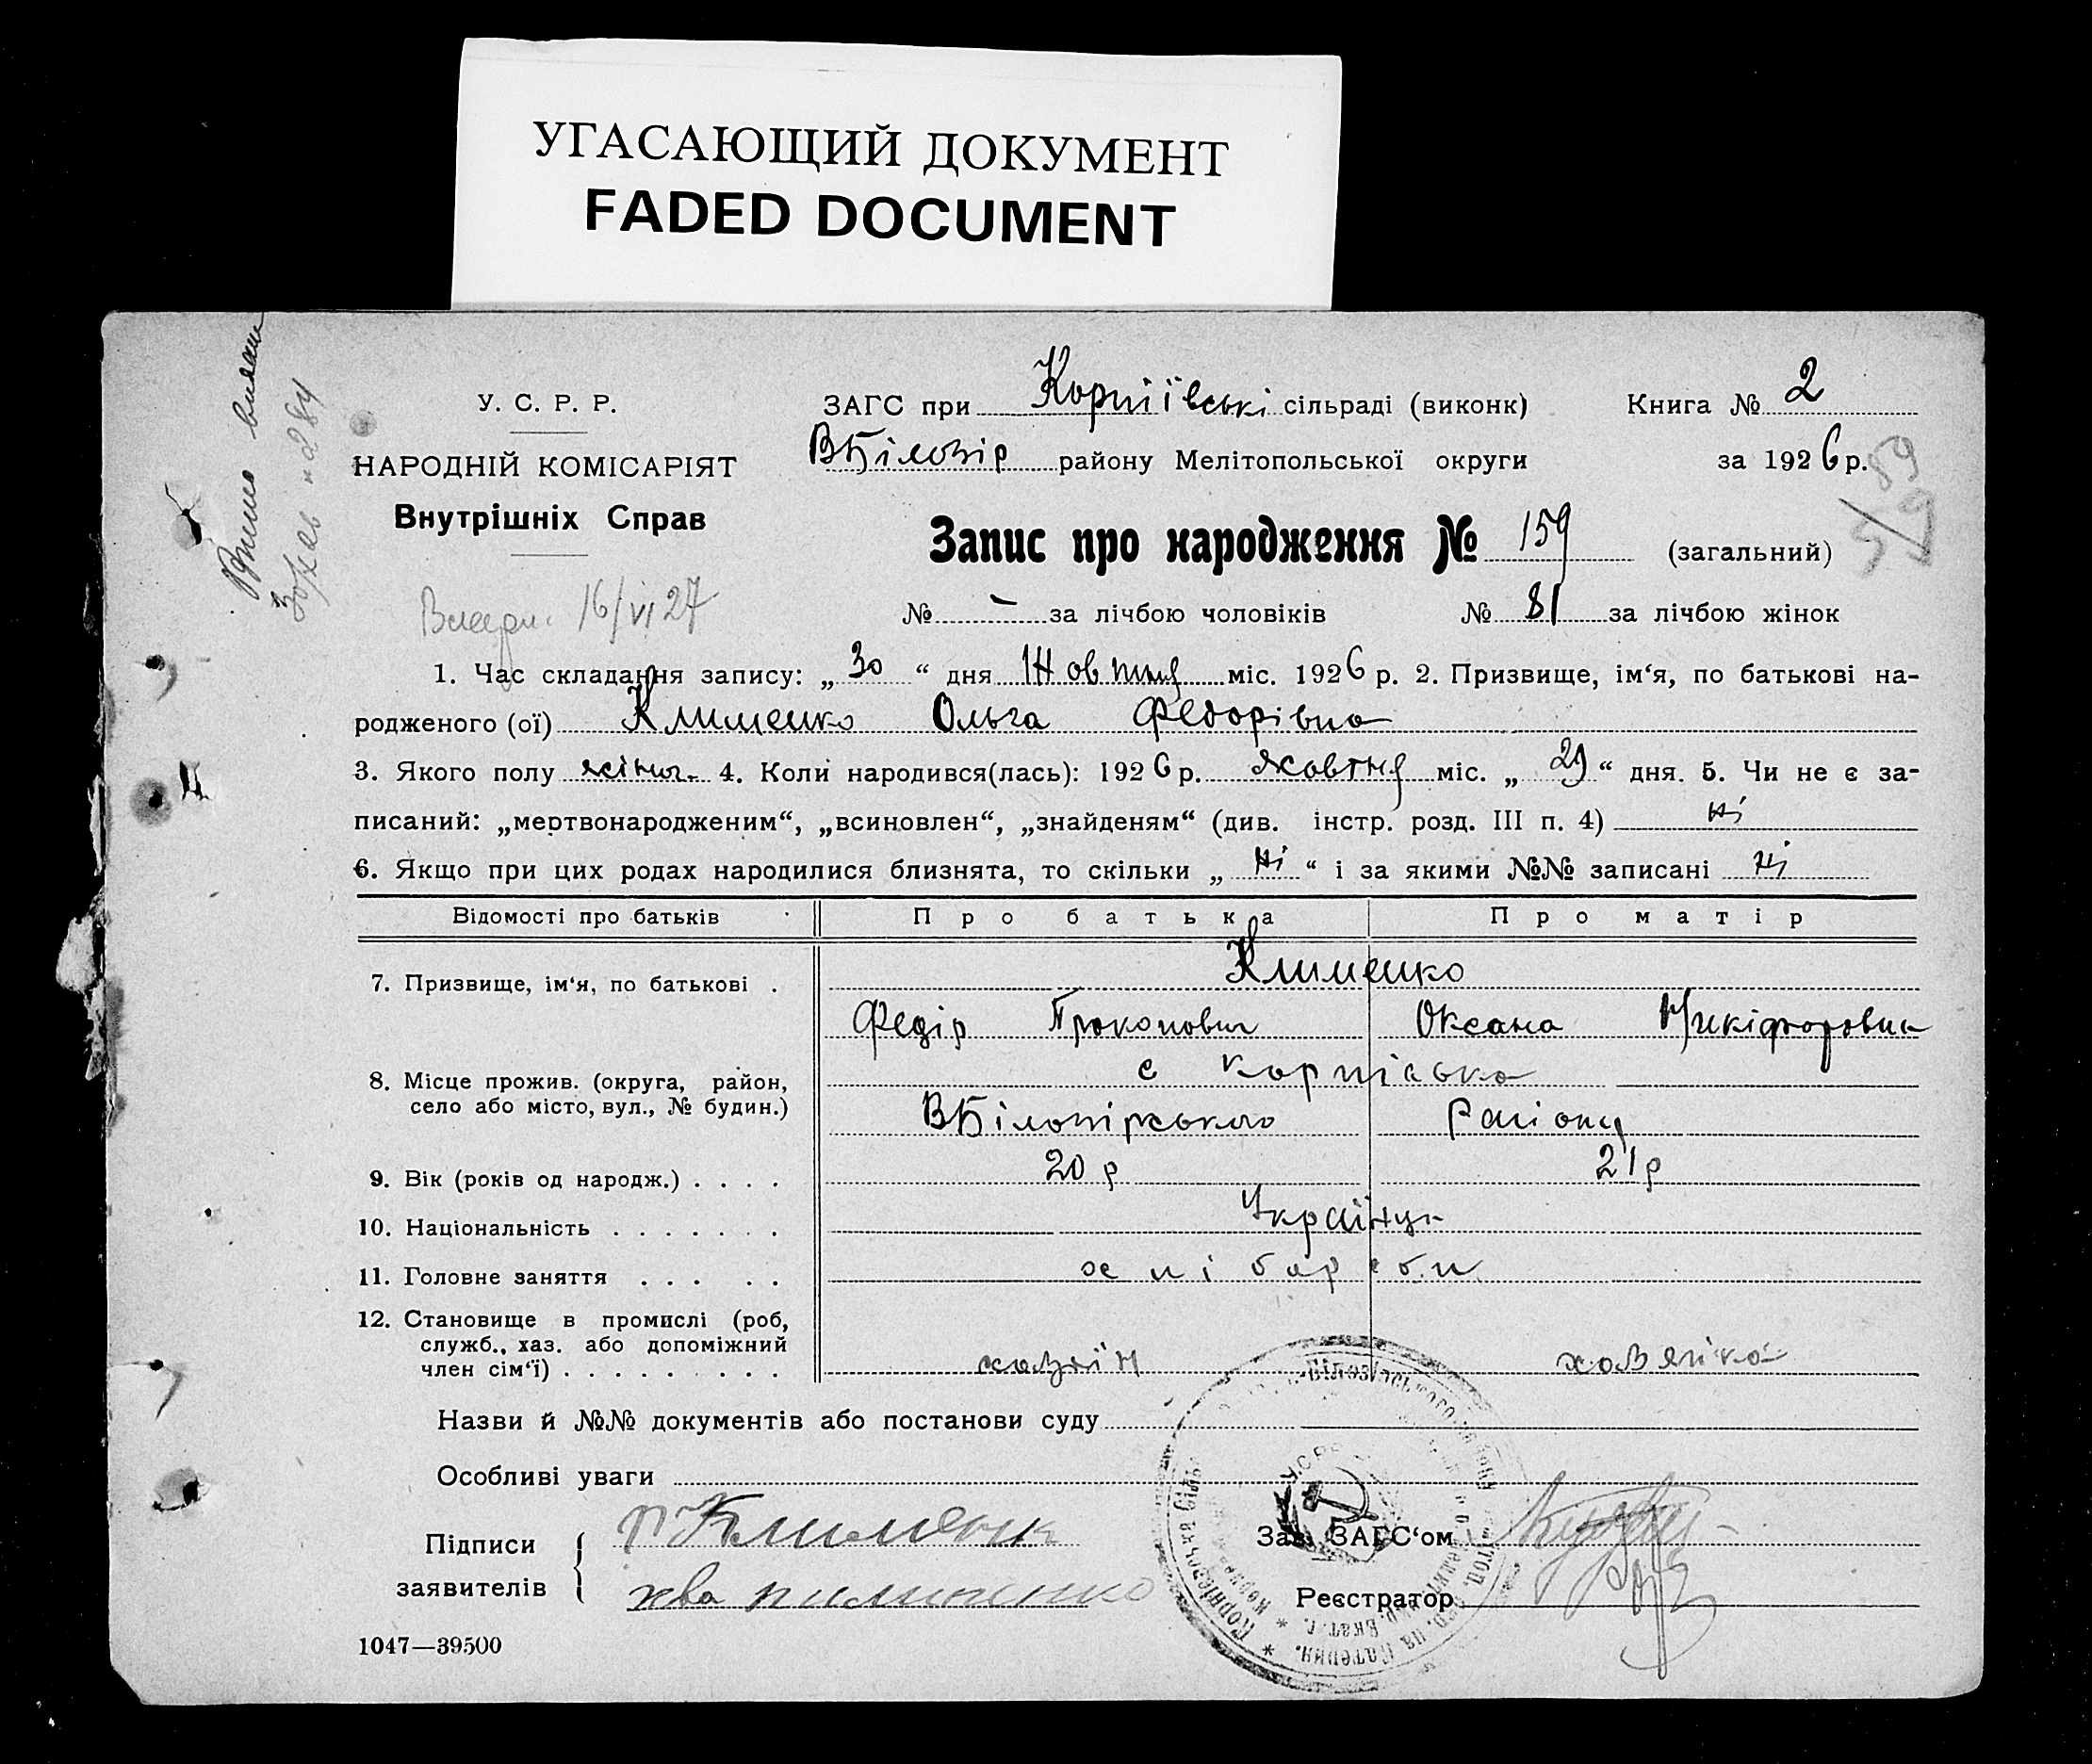 УГАСАЮЩИЙ ДОКУМЕНТ
FADED DOCUMENT
У. С. Р. Р.
НАРОДНІЙ КОМІСАРІЯТ
Внутрішніх Справ
ЗАГС при Корніївські сільраді (виконк) Книга № 2
ВБілозір району Мелітопольської округи за 1926 р.
59
Запис про народження № 159 (загальний)
16/VI 27
№ – за лічбою чоловіків № 81 за лічбою жінок
1. Час складання запису: „ 30 “ дня Жовтня міс. 1926 р. 2. Призвище, ім‘я, по батькові на-
родженого (ої) Клименко Ольга Федорівна
3. Якого полу жіноч. 4. Коли народився(лась): 1926 р. жовтня міс. „ 29 “ дня. 5. Чи не є за-
писаний: „мертвонародженим“, „всиновлен“, „знайденям“ (див. інстр. розд. III п. 4) ні
6. Якщо при цих родах народилися близнята, то скільки „ ні “ і за якими №№ записані ні
Відомості про батьків Про батька Про матір
7. Призвище, ім‘я, по батькові . Клименко
Федір Прокопович Оксана Никіфоровна
8. Місце прожив. (округа, район,
село або місто, вул., № будин.)
ВБілозірського Раіону
9. Вік (років од народж.) . . . . 20 р 21 р
10. Національність . . . . . . . Українці
11. Головне заняття . . . . . хлібороби
12. Становище в промислі (роб,
служб., хаз. або допоміжний
член сім‘ї) . . . . . . . . . хазяїн хозяйка
Назви й №№ документів або постанови суду
Особливі уваги
Підписи
заявителів
Клименко
Зав. ЗАГС‘ом
Реєстратор
1047—39500